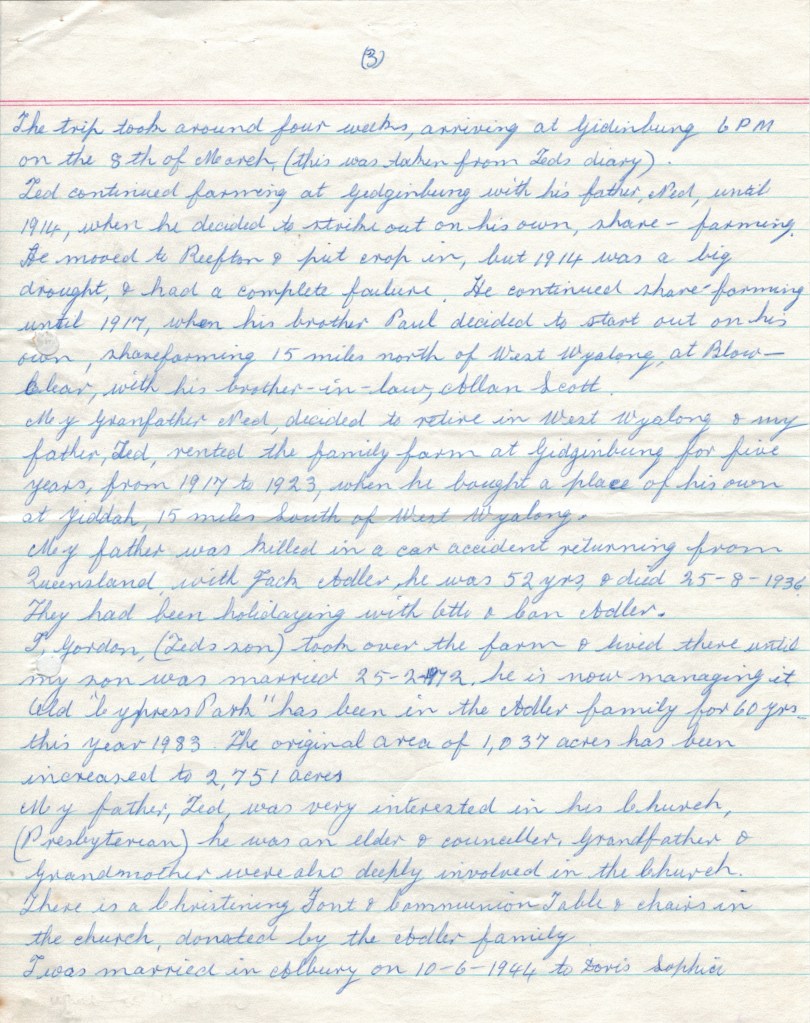 (3)
The trip took around four weeks, arriving at Gidinbung 6 PM
on the 8th of March, (this was taken from Teds diary).
Ted continued farming at Gedginbung with his father, Ned, until
1914, when he decided to strike out on his own, share-farming.
He moved to Reefton & put crop in, but 1914 was a big
drought, & had a complete failure. He continued share-farming
until 1917, when his brother Paul decided to start out on his
own, sharefarming 15 miles north of West Wyalong, at Blow-
Clear, with his brother-in-law, Allan Scott.
My Granfather Ned, decided to retire in West Wyalong & my
father, Ted, rented the family farm at Gidginbung for five
years, from 1917 to 1923, when he bought a place of his own
at Yiddah, 15 miles South of West Wyalong.
My father was killed in a car accident returning from
Queensland, with Jack Adler, he was 52 yrs, & died 25-8-1936
They had been holidaying with & Con Adler.
I, Gordon, (Teds son) took over the farm & lived there until
my son was married 25-2-1972, he is now managing it
Old "Cypress Park" has been in the Adler family for 60 yrs
this year 1983. The original area of 1,037 acres has been
increased to 2,751 acres
My father, Ted, was very interested in his Church,
(Presbyterian) he was an elder & counceller. Grandfather &
Grandmother were also deeply involved in the Church.
There is a Christining Font & Communion Table & chairs in
the church, donated by the Adler family.
I was married in Albury on 10-6-1944 to Doris Sophia